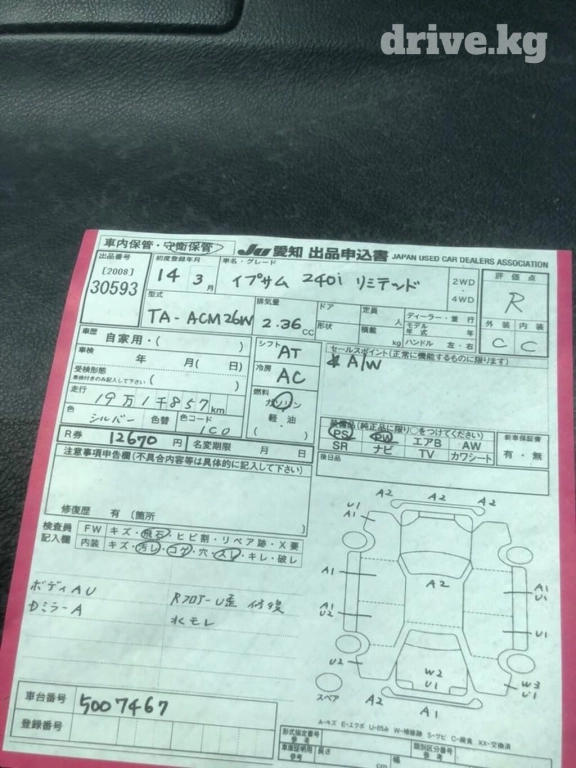 drive.kg
車内保管・守衛保管
JU 愛知 出品申込書 JAPAN USED CAR DEALERS ASSOCIATION
出品番号
[2008]
30593
初度登録年月
14 3月
車名・グレード
イプサム 240i リミテッド
2WD・4WD
評価点
R
外装 内装
C C
型式
TA-ACM26W
排気量
2.36cc
ドア
形状
定員 人
積載 kg
ディーラー・並行
モデル年式 年
ハンドル 左・右
車歴
自家用・( )
シフト
AT
セールスポイント(正常に機能するものに限ります)
A/W
車検
年 月( 日)
冷房
AC
受検形態
車検付きのみ記入して下さい
( )
走行
19万1千857km
燃料
ガソリン
軽油
( )
色
シルバー
色替
色コード
1C0
装備品(純正品に限り○をつけてください)
PS PW エアB AW
SR ナビ TV カワシート
新車保証書
有・無
後日品
R券
12670円
名変期限 月 日
注意事項申告欄(不具合内容等は具体的に記入して下さい)
修復歴 有(箇所
検査員記入欄
FW キズ・飛石・ヒビ割・リペア跡・X要
内装 キズ・汚レ・コゲ・穴・スレ・キレ・破レ
ボディAU
RフロアーU歪 修復
ドミラーA
水モレ
A2
U1
A1
A2
A2
A2
A1
A1
U1
A1
U2
U1
U2
W2
U1
W3
U1
スペア
A2
A1
A-キズ E-エクボ U-凹み W-補修跡 S-サビ C-腐食 XX-交換済
車台番号
5007467
登録番号
形式指定番号
参考
類別区分番号
参考
車庫証明用
参考
長さ
cm
幅